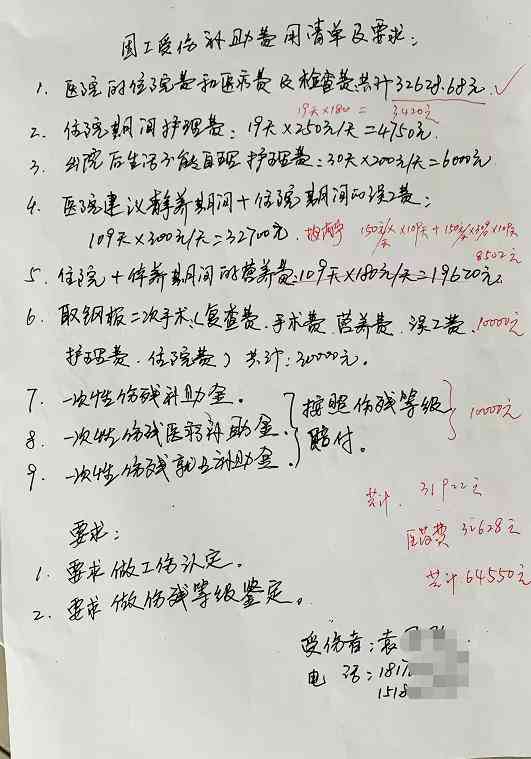 因工受伤补助费用清单及要求：
1. 医院的住院费和医药费及检查费共计32628.68元 ✓
19天×180= 3420元
2. 住院期间护理费：19天×250元/天=4750元.
3. 出院后生活不能自理护理费：30天×200元/天=6000元
4. 医院建议静养期间+住院期间的误工费：
109天×300元/天=32700元.
150元/天×109天+150元
8502元
5. 住院+休养期间的营养费：109天×180元/天=19620元.
6. 取钢板二次手术（复查费.手术费.营养费.误工费. 10000元
护理费.住院费）共计：30000元.
7. 一次性伤残补助金.
8. 一次性伤残医疗补助金. 按照伤残等级 10000元
9. 一次性伤残就业补助金. 赔付.
共计. 31922元
医药费 32628元
共计64550元
要求：
1. 要求做工伤认定.
2. 要求做伤残等级鉴定.
受伤者：袁
电 话：1817
1518